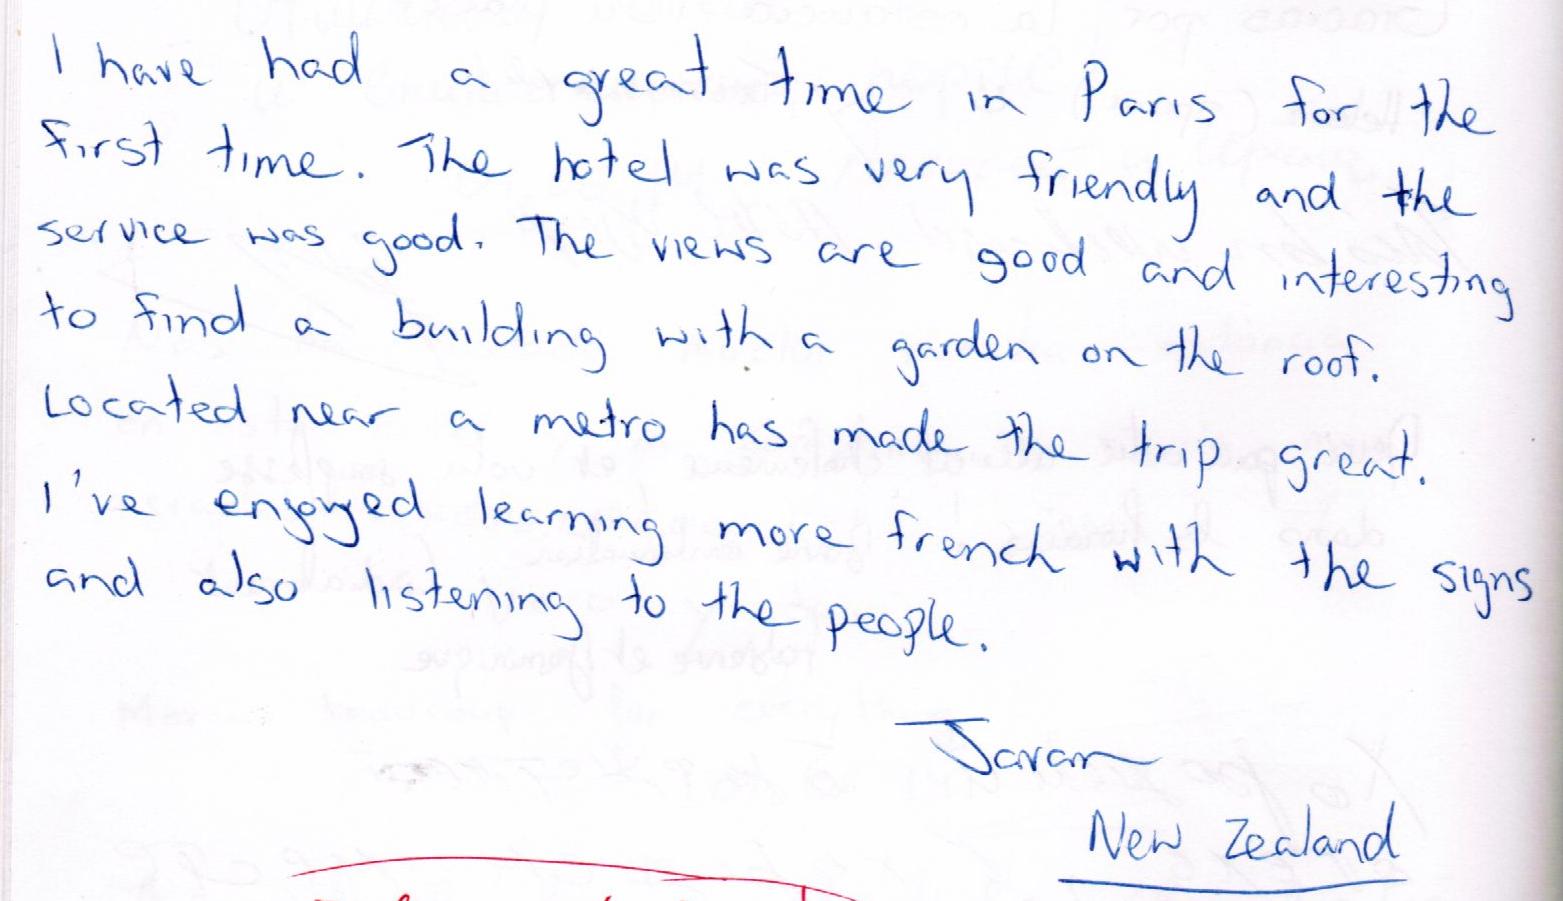 I have had a great time in Paris for the
first time. The hotel was very friendly and the
service was good. The views are good and interesting
to find a building with a garden on the roof.
Located near a metro has made the trip great.
I've enjoyed learning more french with the signs
and also listening to the people.
New Zealand